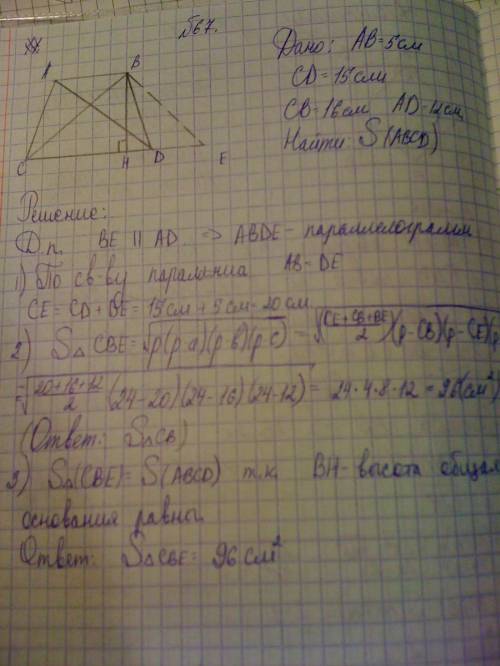 №67.
Дано: AB=5см
CD=15см
CB=16см AD=12см
Найти S(ABCD)
A B
C H D E
Решение:
Д.п. BE || AD ⇒ ABDE - параллелограмм
1) По св-ву AB=DE
CE = CD + DE = 15см + 5см = 20см
2) S△ CBE = √p(p-a)(p-b)(p-c) = √(CE+CB+BE)/2 (p-CB)(p-CE)(p
= √(20+16+12)/2 (24-20)(24-16)(24-12) = 24·4·8·12 = 96(см²)
(Ответ: S△CB)
3) S△(CBE) = S(ABCD) т.к. BH - высота общая
основания равны.
Ответ: S△CBE = 96 см²